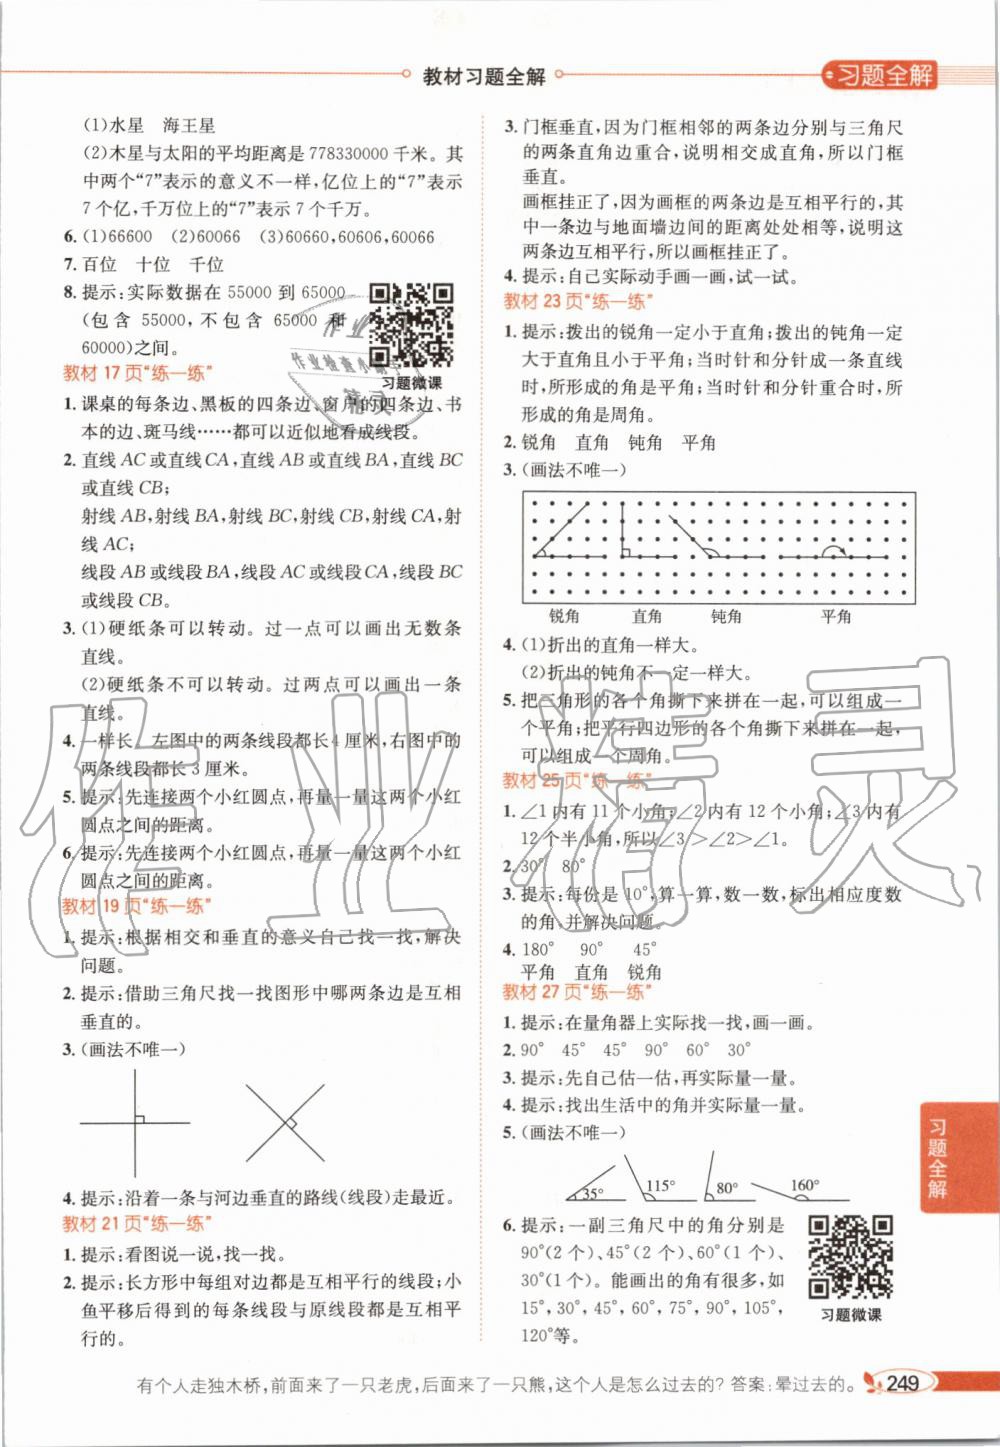 教材习题全解
习题全解
(1)水星 海王星
(2)木星与太阳的平均距离是778330000千米。其
中两个“7”表示的意义不一样,亿位上的“7”表示
7个亿,千万位上的“7”表示7个千万。
6. (1)66600 (2)60066 (3)60660,60606,60066
7. 百位 十位 千位
8. 提示:实际数据在 55000 到 65000
(包含 55000,不包含 65000 和
60000)之间。
习题微课
教材 17 页“练一练”
1. 课桌的每条边、黑板的四条边、窗户的四条边、书
本的边、斑马线……都可以近似地看成线段。
2. 直线 AC 或直线 CA,直线 AB 或直线 BA,直线 BC
或直线 CB;
射线 AB,射线 BA,射线 BC,射线 CB,射线 CA,射
线 AC;
线段 AB 或线段 BA,线段 AC 或线段 CA,线段 BC
或线段 CB。
3. (1)硬纸条可以转动。过一点可以画出无数条
直线。
(2)硬纸条不可以转动。过两点可以画出一条
直线。
4. 一样长 左图中的两条线段都长4厘米,右图中的
两条线段都长3厘米。
5. 提示:先连接两个小红圆点,再量一量这两个小红
圆点之间的距离。
6. 提示:先连接两个小红圆点,再量一量这两个小红
圆点之间的距离。
教材 19 页“练一练”
1. 提示:根据相交和垂直的意义自己找一找,解决
问题。
2. 提示:借助三角尺找一找图形中哪两条边是互相
垂直的。
3. (画法不唯一)
4. 提示:沿着一条与河边垂直的路线(线段)走最近。
教材 21 页“练一练”
1. 提示:看图说一说,找一找。
2. 提示:长方形中每组对边都是互相平行的线段;小
鱼平移后得到的每条线段与原线段都是互相平
行的。
3. 门框垂直,因为门框相邻的两条边分别与三角尺
的两条直角边重合,说明相交成直角,所以门框
垂直。
画框挂正了,因为画框的两条边是互相平行的,其
中一条边与地面墙边间的距离处处相等,说明这
两条边互相平行,所以画框挂正了。
4. 提示:自己实际动手画一画,试一试。
教材 23 页“练一练”
1. 提示:拨出的锐角一定小于直角;拨出的钝角一定
大于直角且小于平角;当时针和分针成一条直线
时,所形成的角是平角;当时针和分针重合时,所
形成的角是周角。
2. 锐角 直角 钝角 平角
3. (画法不唯一)
锐角 直角 钝角 平角
4. (1)折出的直角一样大。
(2)折出的钝角不一定一样大。
5. 把三角形的各个角撕下来拼在一起,可以组成一
个平角;把平行四边形的各个角撕下来拼在一起,
可以组成一个周角。
教材 25 页“练一练”
1. ∠1内有11个小角;∠2内有12个小角;∠3内有
12个半小角,所以∠3>∠2>∠1。
2. 30° 80°
3. 提示:每份是10°,算一算,数一数,标出相应度数
的角,并解决问题。
4. 180° 90° 45°
平角 直角 锐角
教材 27 页“练一练”
1. 提示:在量角器上实际找一找,画一画。
2. 90° 45° 45° 90° 60° 30°
3. 提示:先自己估一估,再实际量一量。
4. 提示:找出生活中的角并实际量一量。
5. (画法不唯一)
35° 115° 80° 160°
6. 提示:一副三角尺中的角分别是
90°(2个)、45°(2个)、60°(1个)、
30°(1个)。能画出的角有很多,如
15°,30°,45°,60°,75°,90°,105°,
120°等。
习题微课
习题全解
有个人走独木桥,前面来了一只老虎,后面来了一只熊,这个人是怎么过去的?答案:晕过去的。
249
作业精灵
作业检查小助手
精灵